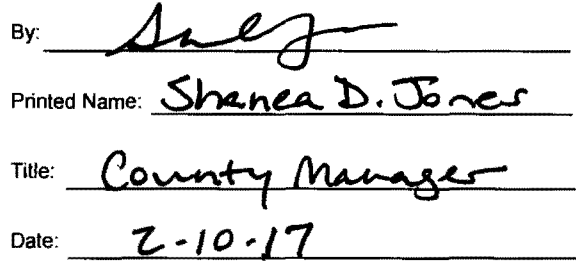 By:
Printed Name: Shanea D. Jones
Title: County Manager
Date: 2-10-17